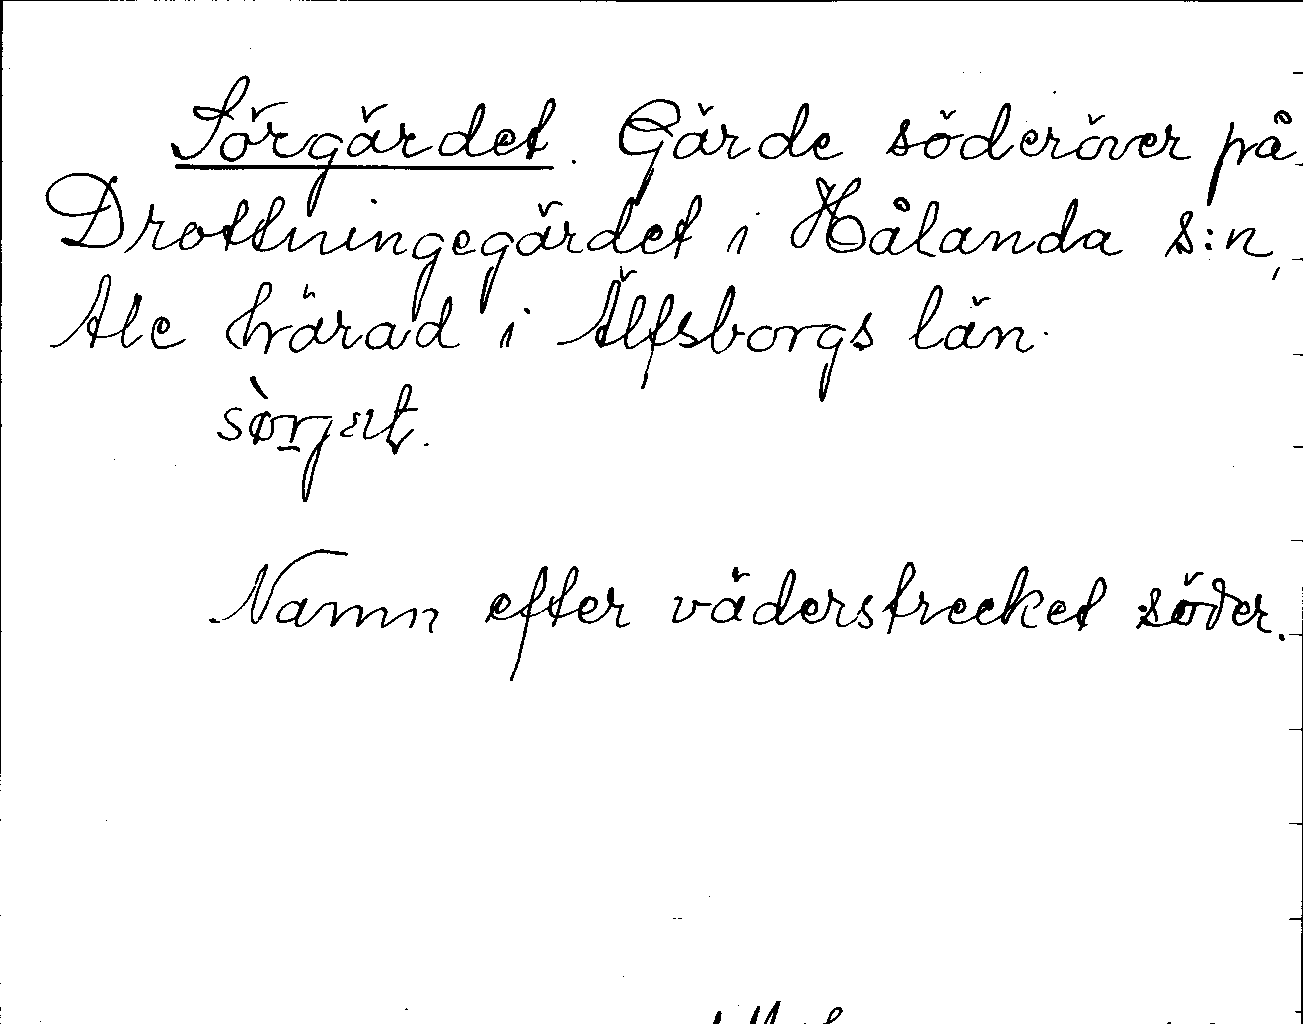 Sörgärdet. Gärde söderöver på
Drottningegärdet i Hålanda s:n,
Ale härad i Älfsborgs län.
Namn efter väderstrecket söder.